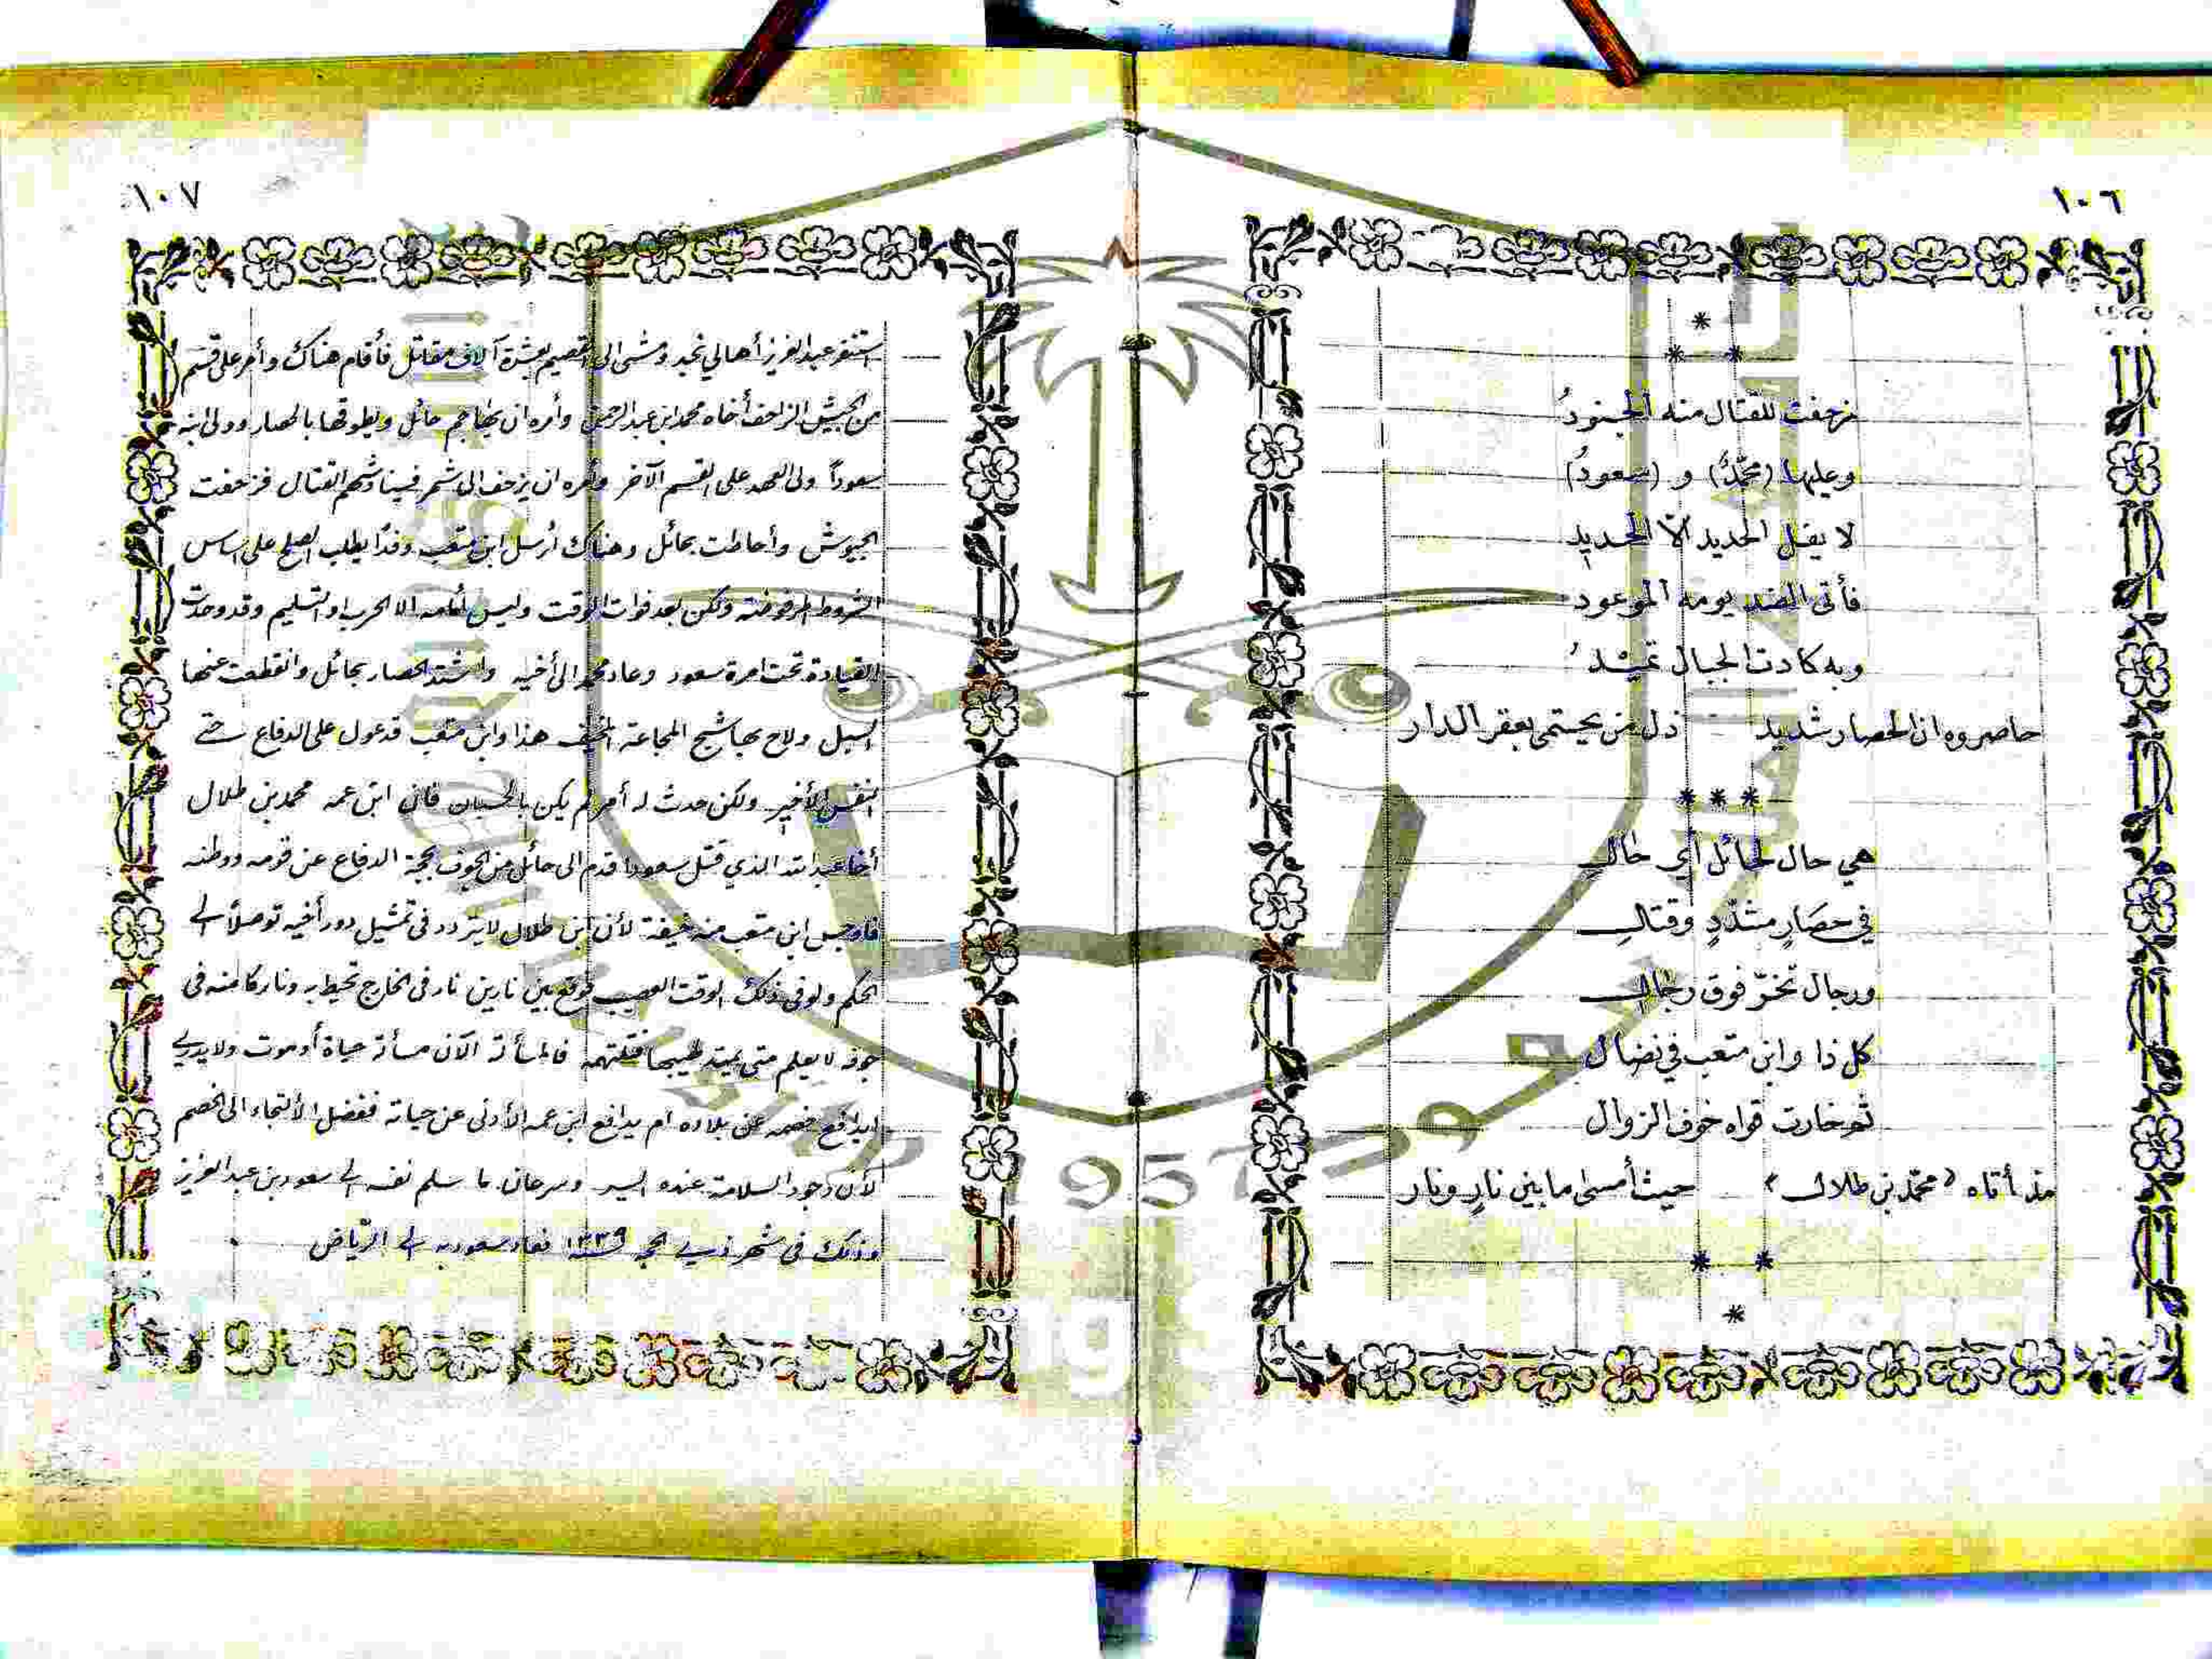 ١٠٦
*
* *
زحفت للقتال منه الجنودُ
وعليها (محمّدٌ) و (سعودُ)
لا يفل الحديد الّا الحديد
فأتى الضد يومه الموعود
وبه كادت الجبال تميدُ
حاصروه ان الحصار شديد ذل من يحتمى بعقر الدار
* * *
هي حال لحائل أي حال
في حصَارٍ مشدّدٍ وقتالِ
ورجال تخرّ فوق رجال
كل ذا وابن متعب في نضال
ثم خارت قواه خوف الزوال
مذ أتاه «محمّد بن طلال» حيث أمسى ما بين نارٍ ونار
* *
*
١٠٧
استنفر عبد العزيز أهالي نجد ومشى الى القصيم بعشرة آلاف مقاتل فأقام هناك وأمر على قسم
من الجيش الزاحف أخاه محمد ابن عبد الرحمن وأمره ان يهاجم حائل ويطوقها بالحصار وولى ابنه
سعوداً ولى العهد على القسم الآخر وأمره ان يزحف الى شمر فيناوشهم القتال فزحفت
الجيوش وأحاطت بحائل وهناك أرسل ابن متعب وفداً يطلب الصلح على اساس
الشروط المرفوضة ولكن بعد فوات الوقت وليس أمامه الا الحرب او التسليم وقد وحدت
القيادة تحت امرة سعود وعاد محمد الى أخيه واشتد الحصار بحائل وانقطعت عنها
السبل ولاح بها شبح المجاعة المخيف هذا وابن متعب قد عول على الدفاع حتى
النفس الأخير ولكن حدث له أمر لم يكن بالحسبان فان ابن عمه محمد بن طلال
أخا عبد الله الذي قتل سعودا قدم الى حائل من الجوف بحجة الدفاع عن قومه ووطنه
فاوجس ابن متعب منه خيفة لأن ابن طلال لا يتردد في تمثيل دور أخيه توصلاً الى
الحكم ولو في ذلك الوقت العصيب فوقع بين نارين نار في الخارج تحيط به ونار كامنه في
جوفه لا يعلم متى يمتد لهيبها فتلتهمه فالمسألة الآن مسألة حياة أو موت ولا يدري
ايدافع خصمه عن بلاده ام يدافع ابن عمه الأدنى عن حياته ففضل الألتجاء الى الخصم
لأن وجود السلامة عنده ايسر وسرعان ما سلم نفسه الى سعود بن عبد العزيز
وذلك في شهر ذي الحجه سنة ١٣٣٩ فعاد سعود به الى الرّياض